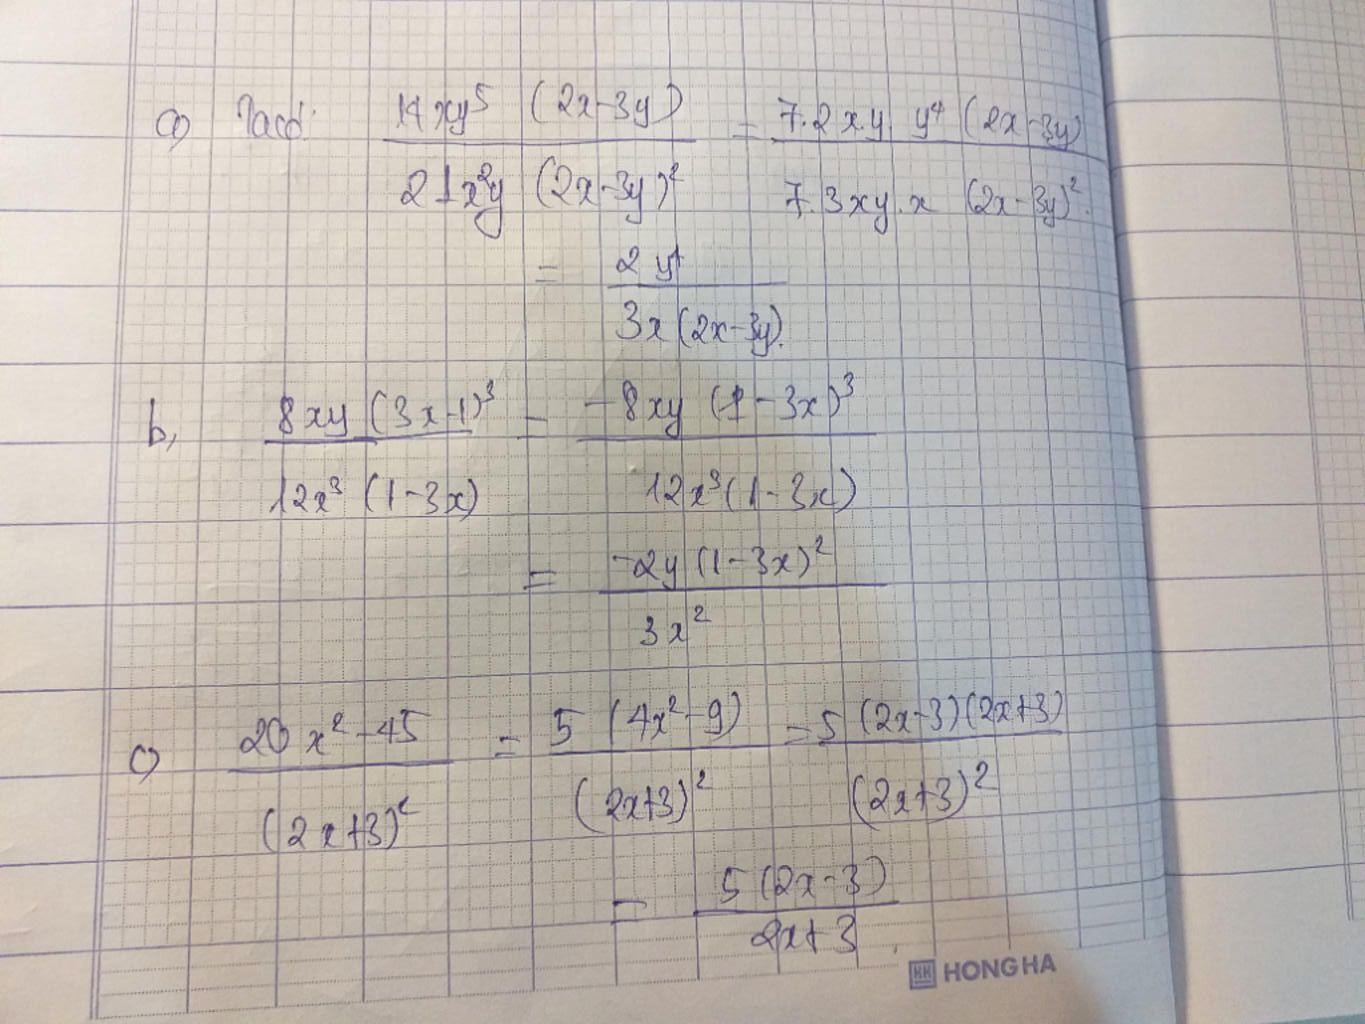 a) Ta có: 14xy⁵ (2x-3y) / 21x²y (2x-3y)² = 7.2xy y⁴ (2x-3y) / 7.3xy.x (2x-3y)²
= 2y⁴ / 3x(2x-3y).
b, 8xy (3x-1)³ / 12x³ (1-3x) = -8xy (1-3x)³ / 12x³(1-3x)
= -2y (1-3x)² / 3x²
c) 20x²-45 / (2x+3)² = 5 (4x²-9) / (2x+3)² = 5 (2x-3)(2x+3) / (2x+3)²
= 5(2x-3) / 2x+3.
HH HONG HA